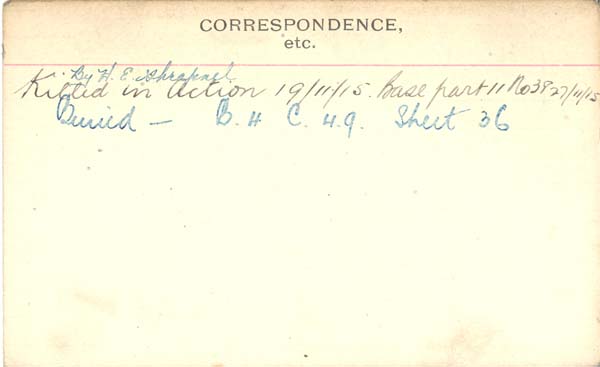 CORRESPONDENCE,
etc.
By H. E. Shrapnel
Killed in Action 19/11/15. Base part 11 No 38 27/11/15
Buried — B. H C. 4.9. Sheet 36